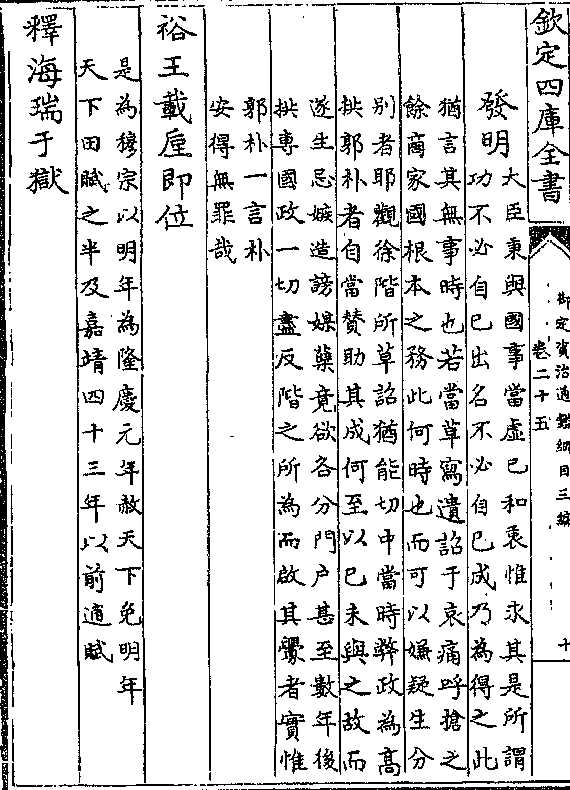 欽定四庫全書
御定資治通鑑綱目三編
卷二十五
十
發明大臣秉與國事當虛已和衷惟求其是所謂
功不必自已出名不必自已成乃為得之此
猶言其無事時也若當草寫遺詔于哀痛呼搶之
餘商家國根本之務此何時也而可以嫌疑生分
別者耶觀徐階所草詔猶能切中當時弊政為高
拱郭朴者自當賛助其成何至以已未與之故而
遂生忌嫉造謗媒糵竟欲各分門户甚至數年後
拱專國政一切盡反階之所為而啟其釁者實惟
郭朴一言朴
安得無罪哉
裕王載垕即位
是為穆宗以明年為隆慶元年赦天下免明年
天下田賦之半及嘉靖四十三年以前逋賦
釋海瑞于獄